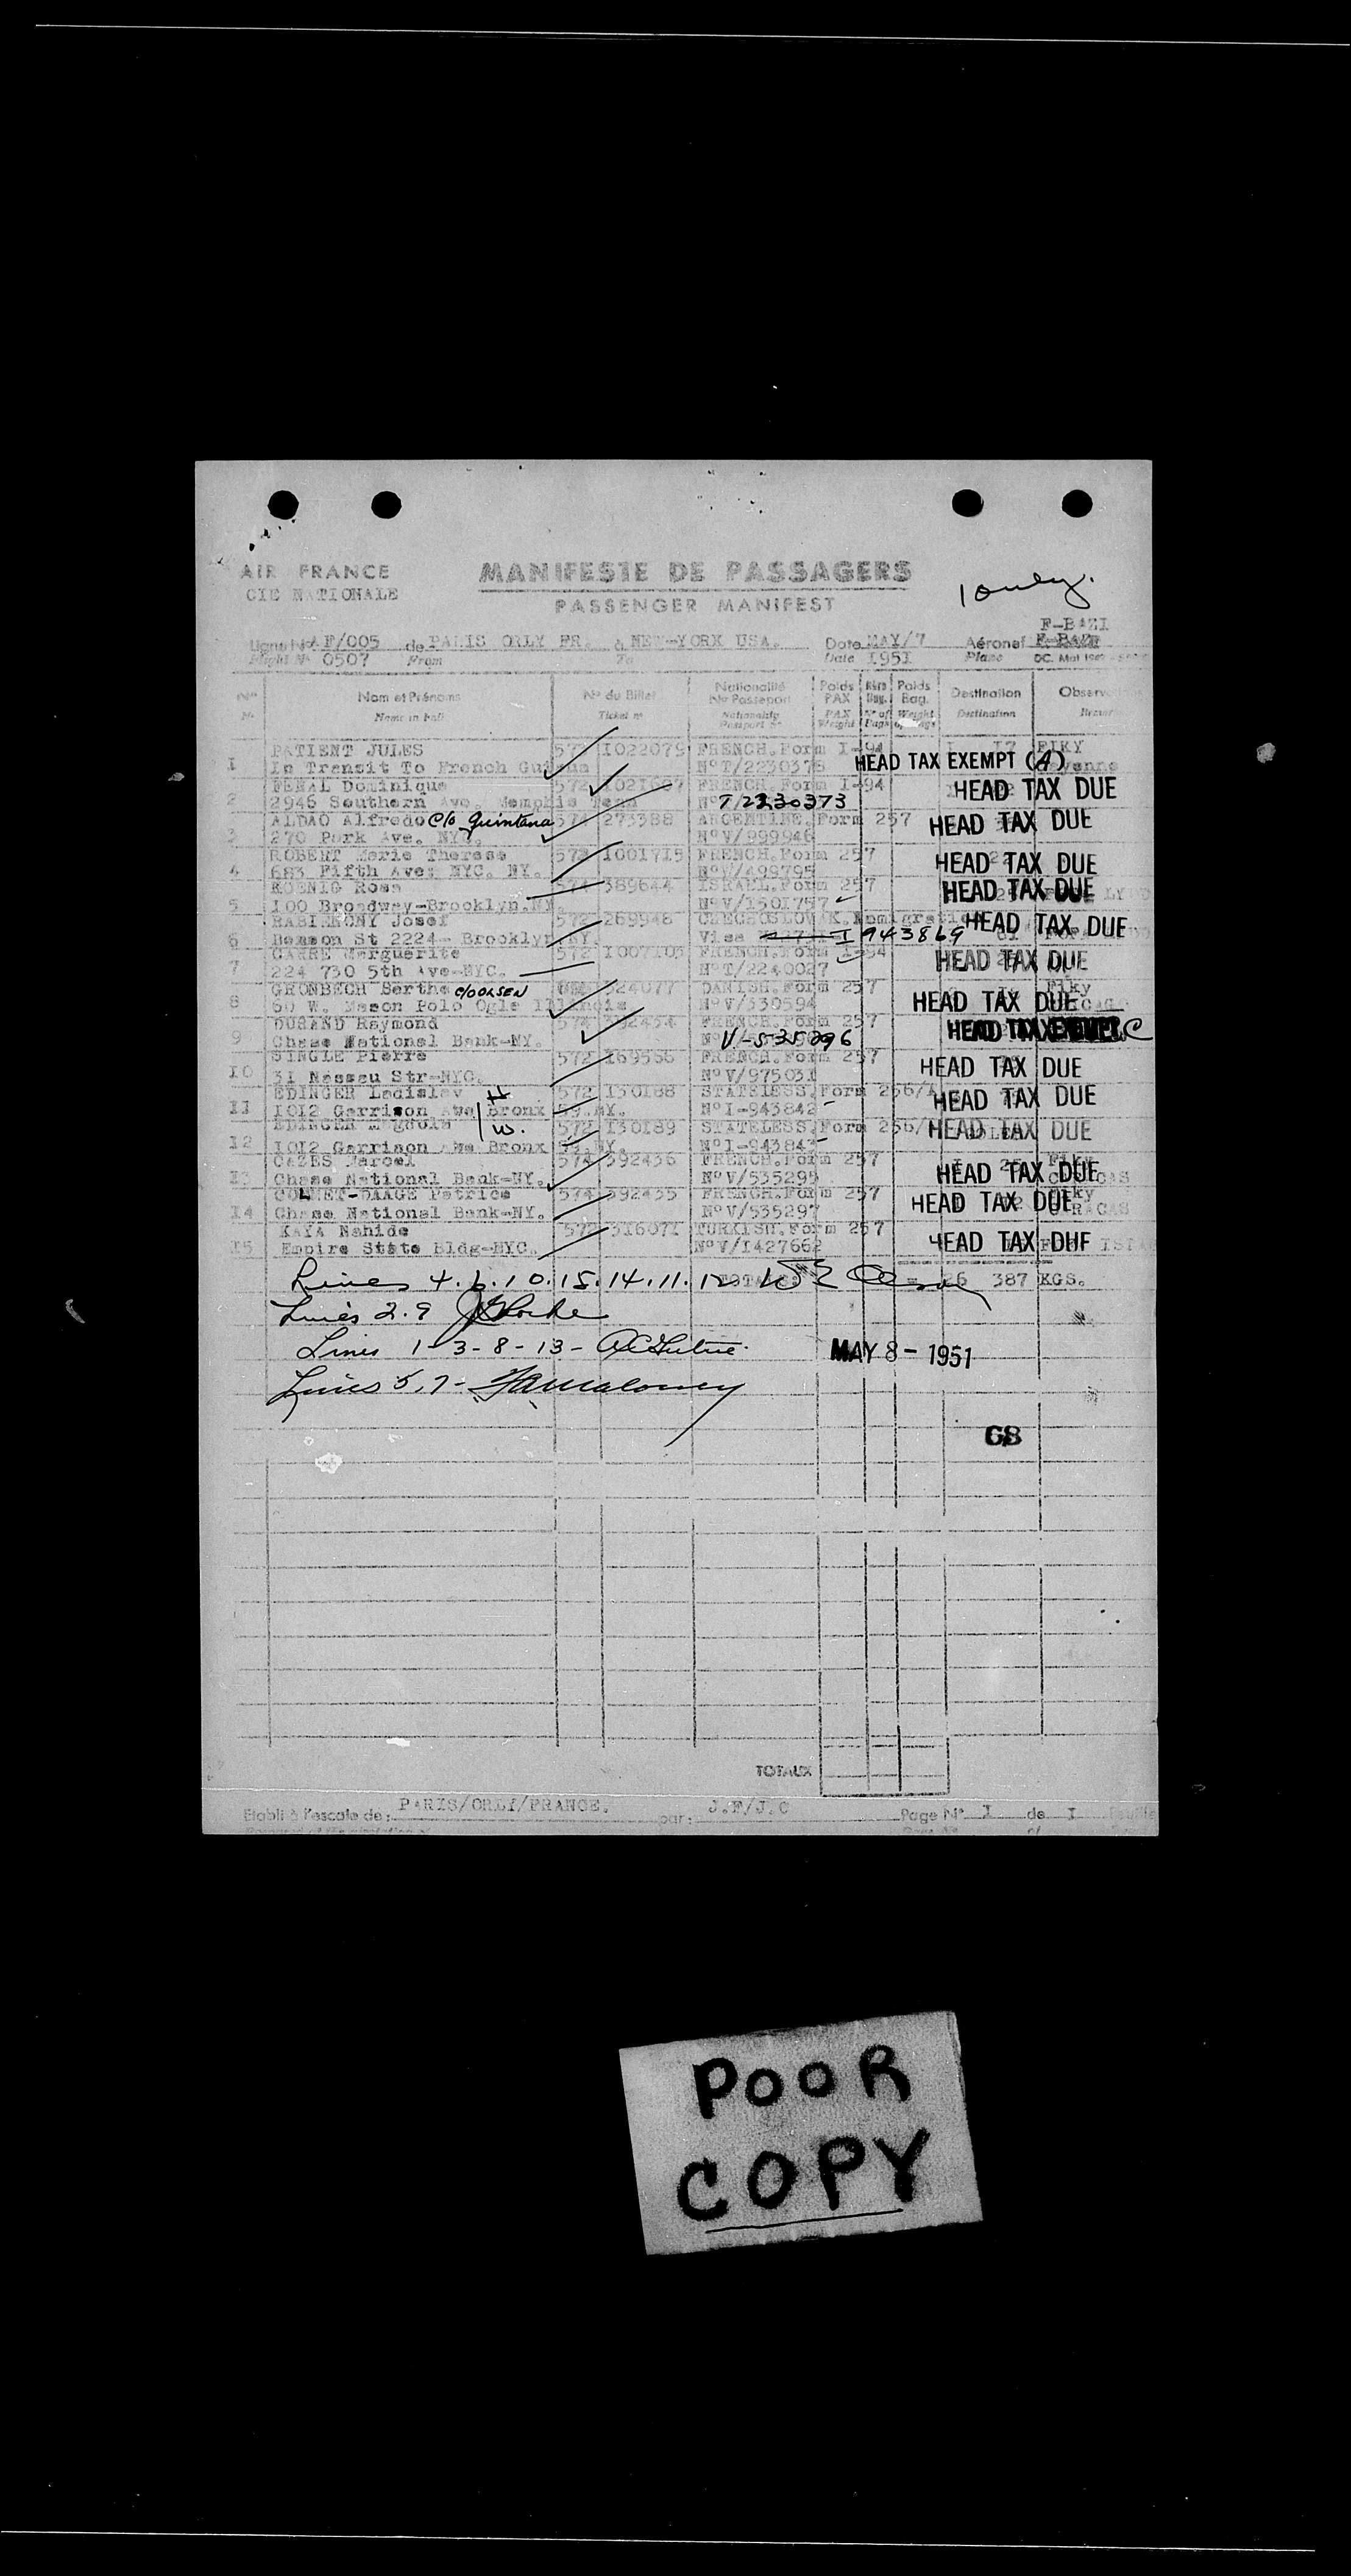 AIR FRANCE
CIE NATIONALE
MANIFESTE DE PASSAGERS
PASSENGER MANIFEST
1 only.
F-BAZI
Ligne No AF/005 de PARIS ORLY FR. à NEW-YORK USA. Date MAY/7 Aéronef
Flight No 0507 From To Date 1951 Plane
No Nom et Prénoms No du Billet Nationalité No Passeport Poids PAX Nbre Bag. Poids Bag. Destination
Name in full Ticket no Nationality Passport no PAX Weight No of Bags Weight Destination
PATIENT JULES 572 1022079 FRENCH. Form I-94 FIKY
1 In Transit To French Guiana No T/2230378 HEAD TAX EXEMPT (A) Cayenne
FENAL Dominique 572 1021607 FRENCH. Form I-94 HEAD TAX DUE
2 2946 Southern Ave. Memphis Tenn No T/2230373
ALDAO Alfredo C/o Quintana 574 273388 ARGENTINE. Form 257 HEAD TAX DUE
3 270 Park Ave. NYC. No V/999946
ROBERT Marie Therese 572 1001715 FRENCH. Form 257 HEAD TAX DUE
4 683 Fifth Ave; NYC. NY. No V/499795
KOENIG Rosa 574 389644 ISRAEL. Form 257 HEAD TAX DUE
5 100 Broadway-Brooklyn. NY. No V/1501757
Josef 572 269948 HEAD TAX DUE
6 Benson St 2224- Brooklyn NY. Visa I 943869
CARRE Marguerite 572 1007105 FRENCH. Form I-94 HEAD TAX DUE
7 224 730 5th Ave-NYC. No T/2240027
GRONBECH Berthe C/O OLSEN 324077 DANISH. Form 257 Fiky
8 60 W. Mason Polo Ogle Illinois No V/530594 HEAD TAX DUE
DURAND Raymond 574 392434 FRENCH. Form 257 HEAD TAX EXEMPT C
9 Chase National Bank-NY. V-535296
SINGLE Pierre 572 169556 FRENCH. Form 257 HEAD TAX DUE
10 31 Nassau Str-NYC. No V/975031
EDINGER Ladislav H 572 130188 STATELESS. Form 256/A HEAD TAX DUE
11 1012 Garrison Ave Bronx 59. NY. No I-943842
EDINGER W. 572 130189 STATELESS. Form 256/A HEAD TAX DUE
12 1012 Garrison Ave Bronx 59. NY. No I-943843
CAZES Marcel 574 392436 FRENCH. Form 257 Fiky
13 Chase National Bank-NY. No V/535295 HEAD TAX DUE CARACAS
COLNET-DAAGE Patrice 574 392435 FRENCH. Form 257 Fiky
14 Chase National Bank-NY. No V/535297 HEAD TAX DUE CARACAS
KAYA Nahide 572 316071 TURKISH. Form 257
15 Empire State Bldg-NYC. No V/1427662 HEAD TAX DUE
Lines 4.6.10.15.14.11.12. 26 387 KGS.
Lines 2.9
Lines 1-3-8-13- MAY 8 - 1951
Lines 5,7- Maloney
GS
TOTAUX
Etabli à l'escale de: PARIS/ORLY/FRANCE. par: J.F/J.C Page No I de I
POOR
COPY